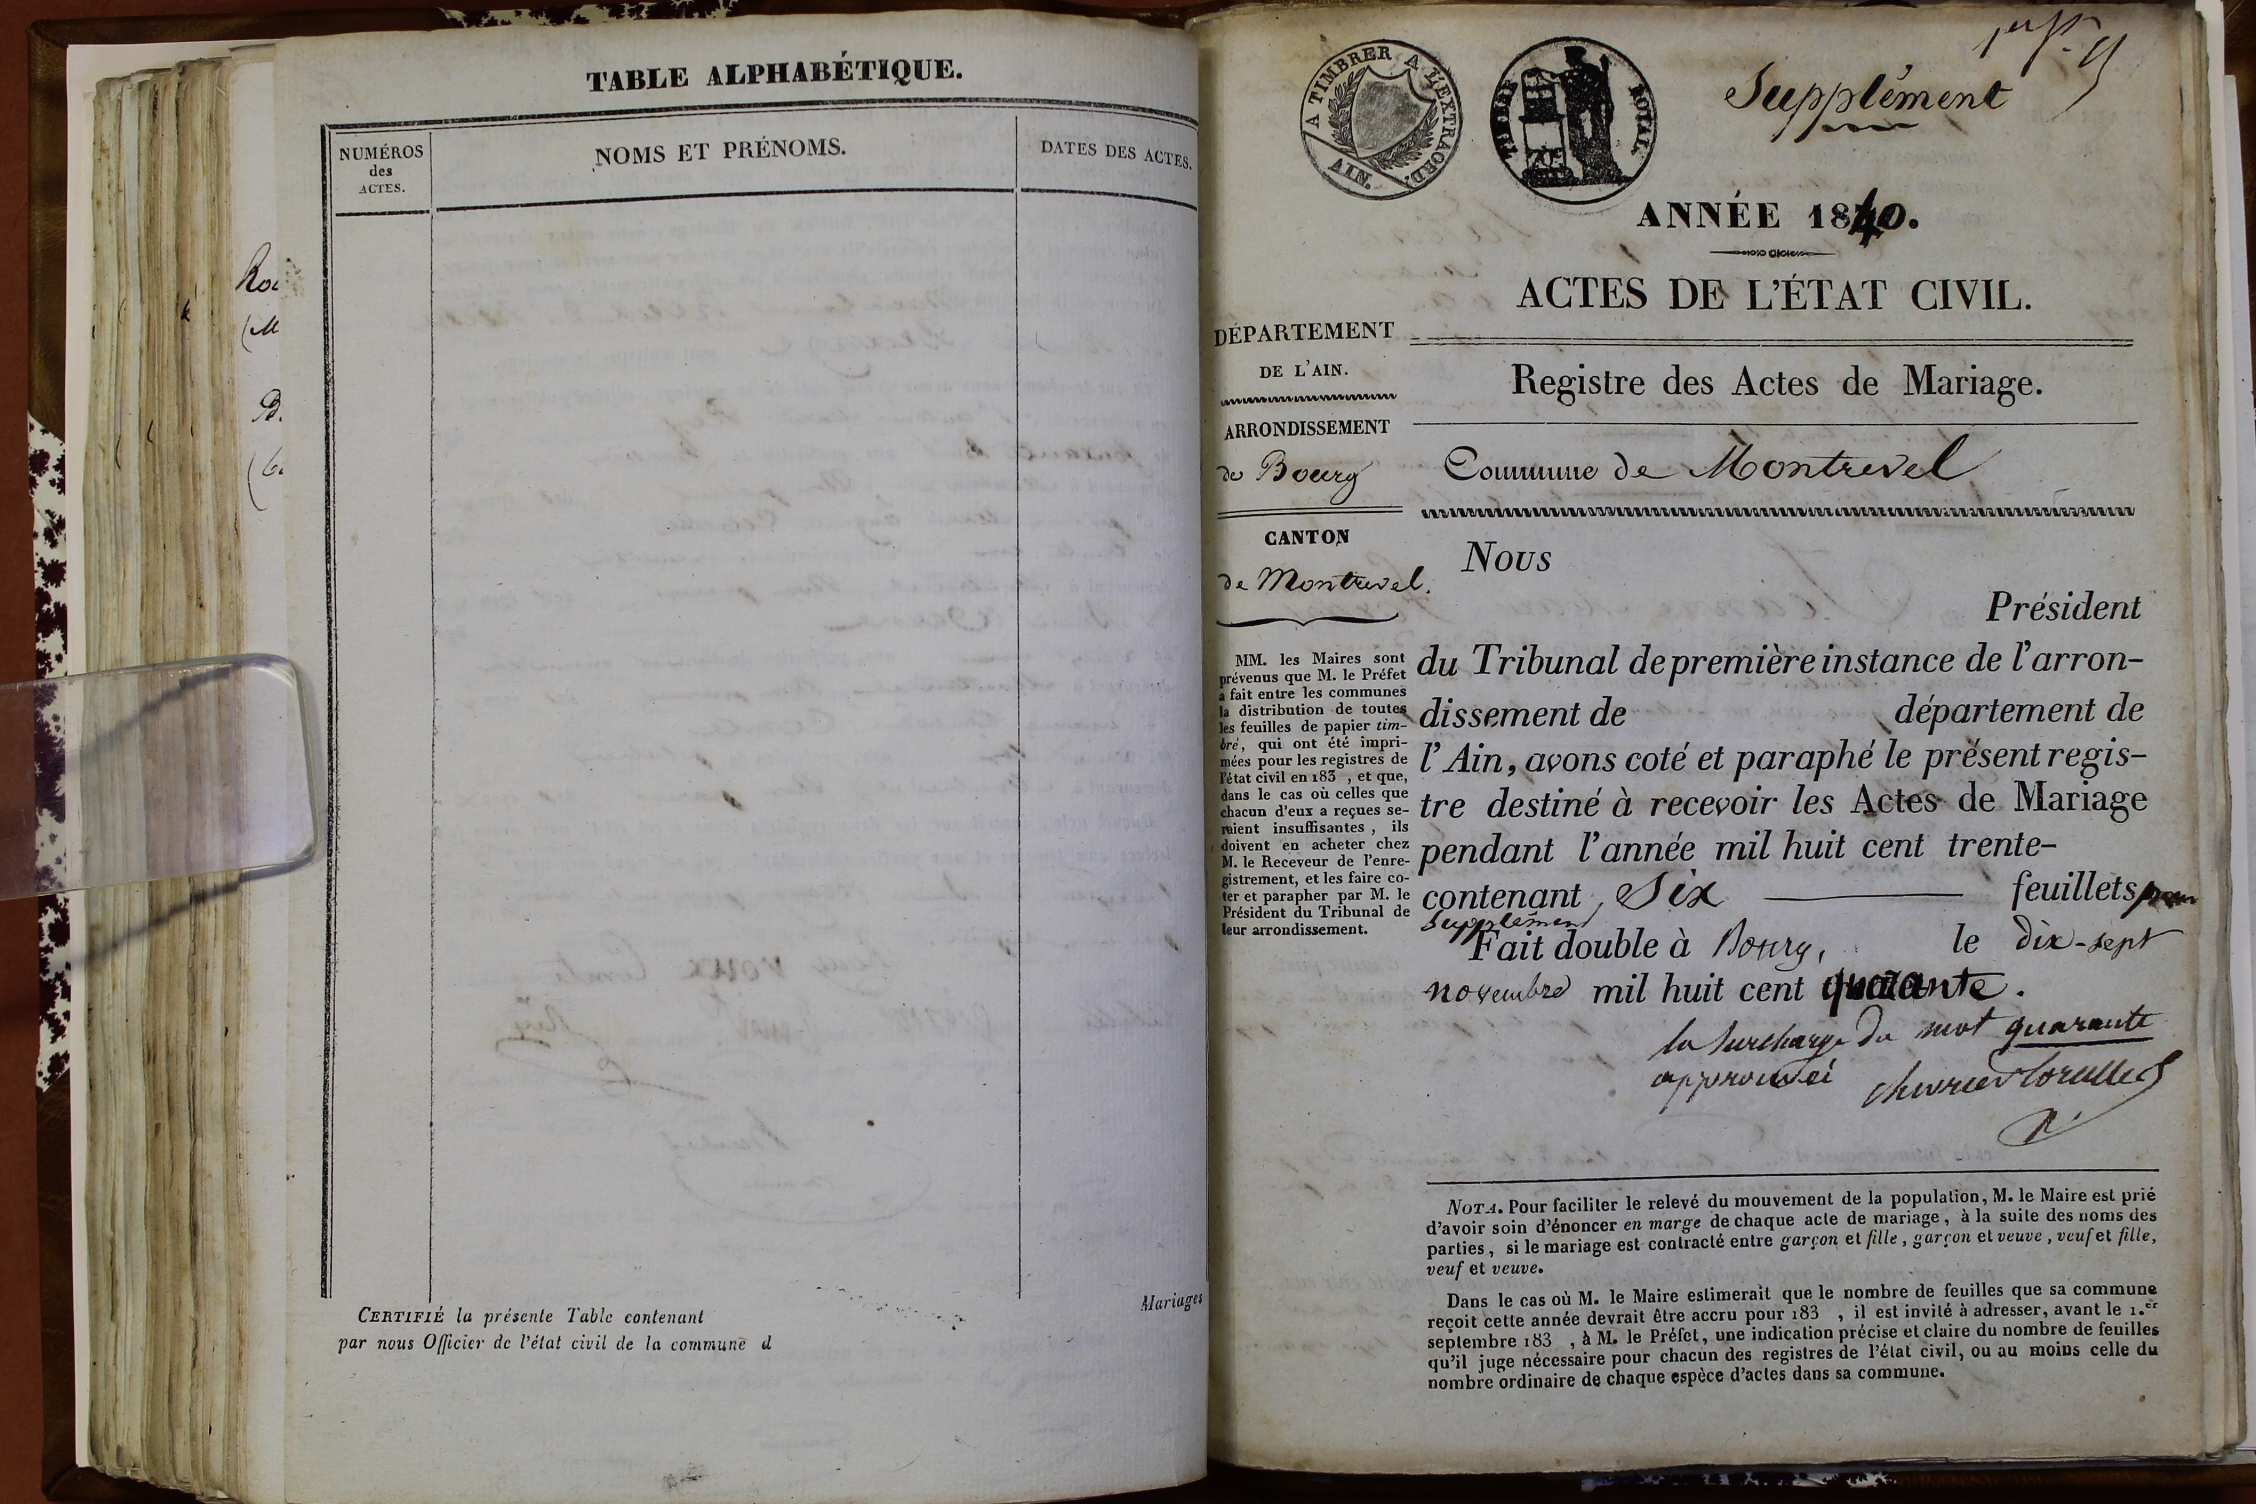 TABLE ALPHABÉTIQUE.
NUMÉROS
des
ACTES.
NOMS ET PRÉNOMS.
DATES DES ACTES.
CERTIFIÉ la présente Table contenant
par nous Officier de l'état civil de la commune d
Mariages
A TIMBRER A L'EXTRAORD.
AIN.
TIMBRE ROYAL.
Supplément
ANNÉE 1840.
ACTES DE L'ÉTAT CIVIL.
DÉPARTEMENT
DE L'AIN.
Registre des Actes de Mariage.
ARRONDISSEMENT
de Bourg
Commune de Montrevel
CANTON
de Montrevel.
MM. les Maires sont
prévenus que M. le Préfet
a fait entre les communes
la distribution de toutes
les feuilles de papier tim-
bré, qui ont été impri-
mées pour les registres de
l'état civil en 183 , et que,
dans le cas où celles que
chacun d'eux a reçues se-
raient insuffisantes, ils
doivent en acheter chez
M. le Receveur de l'enre-
gistrement, et les faire co-
ter et parapher par M. le
Président du Tribunal de
leur arrondissement.
Nous
Président
du Tribunal de première instance de l'arron-
dissement de département de
l'Ain, avons coté et paraphé le présent regis-
tre destiné à recevoir les Actes de Mariage
pendant l'année mil huit cent trente-
contenant Six feuillets pour
Supplément
Fait double à Bourg, le dix-sept
novembre mil huit cent quarante.
la surcharge du mot quarante
approuvée
NOTA. Pour faciliter le relevé du mouvement de la population, M. le Maire est prié
d'avoir soin d'énoncer en marge de chaque acte de mariage, à la suite des noms des
parties, si le mariage est contracté entre garçon et fille, garçon et veuve, veuf et fille,
veuf et veuve.
Dans le cas où M. le Maire estimerait que le nombre de feuilles que sa commune
reçoit cette année devrait être accru pour 183 , il est invité à adresser, avant le 1.er
septembre 183 , à M. le Préfet, une indication précise et claire du nombre de feuilles
qu'il juge nécessaire pour chacun des registres de l'état civil, ou au moins celle du
nombre ordinaire de chaque espèce d'actes dans sa commune.